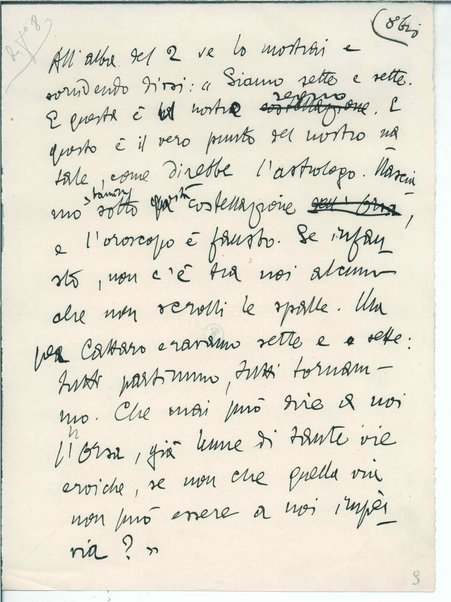 8 bis
All'alba del 2 ve lo mostrai e
sorridendo dissi: « Siamo sette e sette.
E questo è il nostro segno costellazione. E
questo è il vero punto del nostro na
tale, come direbbe l'astrologo. Nascia
mo stanotte sotto questa costellazione dell'Orsa,
e l'oroscopo è fausto. Se infau
sto, non c'è tra noi alcuno
che non scrolli le spalle. Ma
per Cattaro eravamo sette e sette:
tutti partimmo, tutti tornam-
mo. Che mai può dire a noi
l'Orsa, già lume di tante vie
eroiche, se non che quella via
non può essere a noi impèr
via? »
9